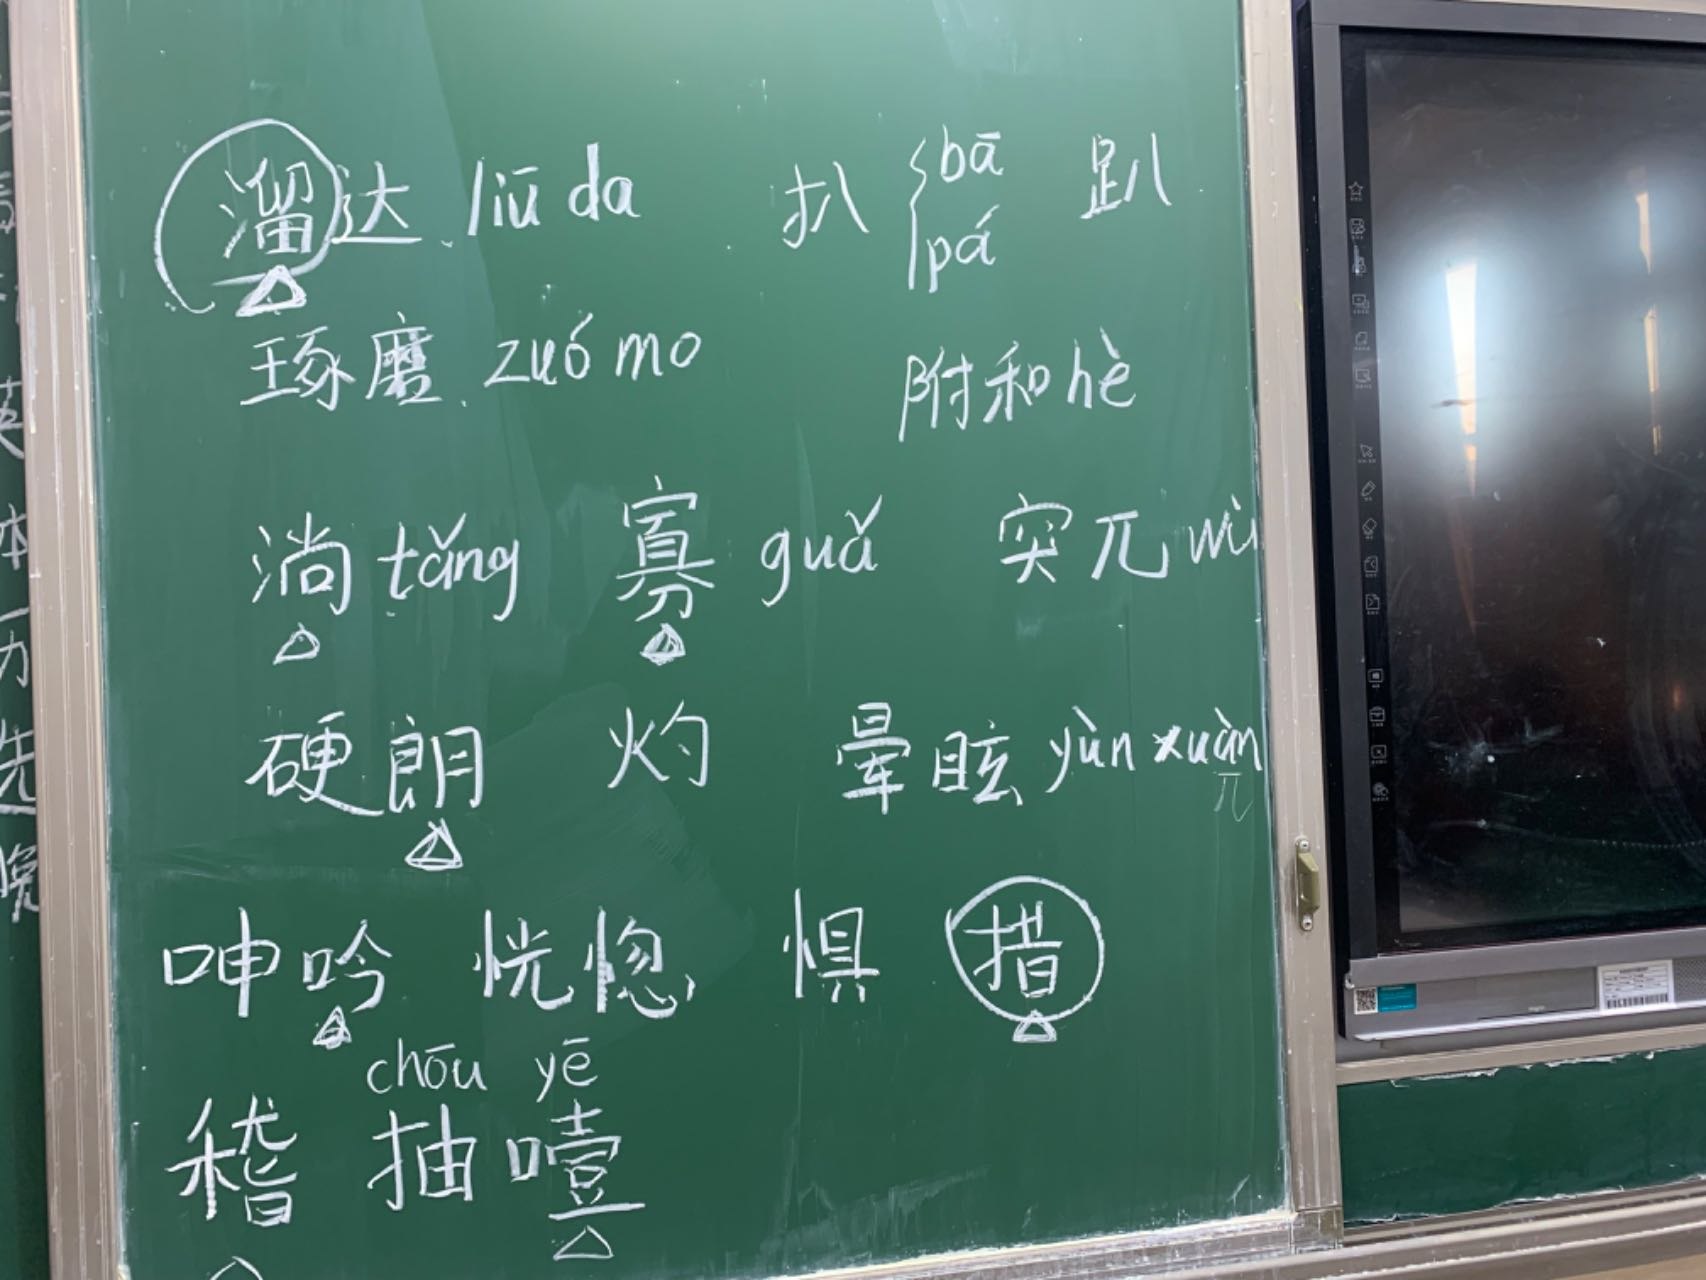 溜达 liū da 扒 bā pá 趴
琢磨 zuó mo 附和 hè
淌 tǎng 寡 guǎ 突兀 wù
硬朗 灼 晕眩 yùn xuàn
兀
呻吟 恍惚 惧 措
chōu yē
稽 抽噎